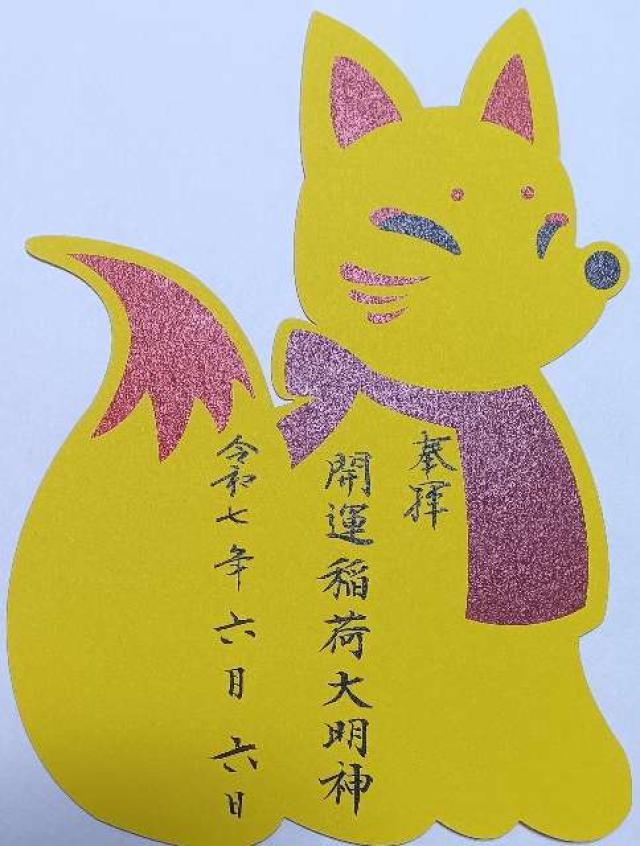 奉拝
開運稲荷大明神
令和七年六月六日